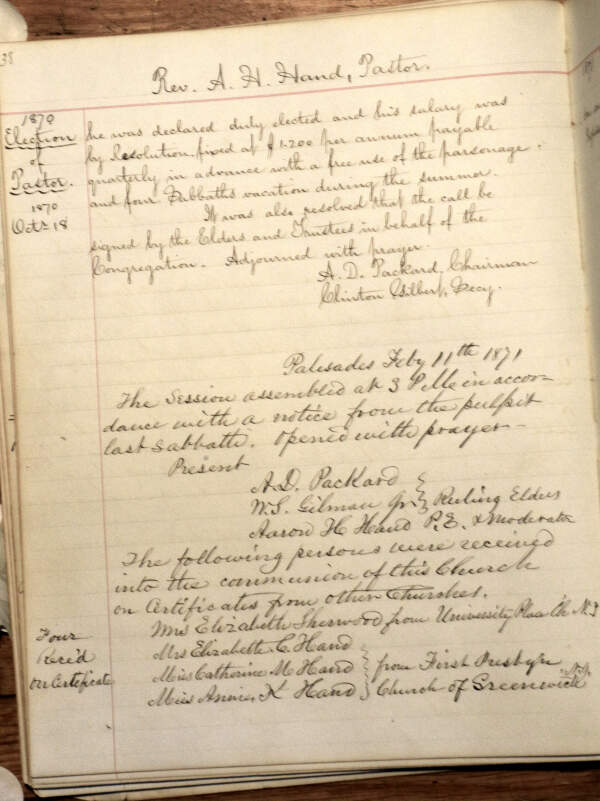 38
Rev. A. H. Hand, Pastor.
1870
Election
of
Pastor.
1870
Octr 18
he was declared duly elected and his salary was
by Resolution fixed at $1.200 per annum payable
quarterly in advance with a free use of the parsonage.
and four Sabbaths vacation during the summer.
It was also resolved that the call be
signed by the Elders and Trustees in behalf of the
Congregation. Adjourned with prayer.
A. D. Packard, Chairman
Clinton Gilbert, Secy.
Palisades Feby 11th 1871
The Session assembled at 3 P.M. in accor-
dance with a notice from the pulpit
last Sabbath. Opened with prayer-
Present
A. D. Packard
W. S. Gilman Jr. } Ruling Elders
Aaron H Hand P.E. & Moderator
The following persons were received
into the communion of this Church
on Certificates from other Churches.
Four
Rec'd
on Certificate
Mrs Elizabeth Sherwood from University Place Ch. N.Y
Mrs Elizabeth C. Hand
Miss Catherine M Hand } from First Presby'n
Miss Annie K Hand } Church of Greenwich